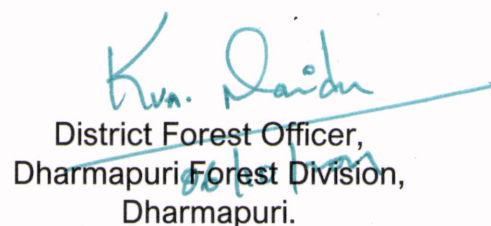 District Forest Officer,
Dharmapuri Forest Division,
Dharmapuri.